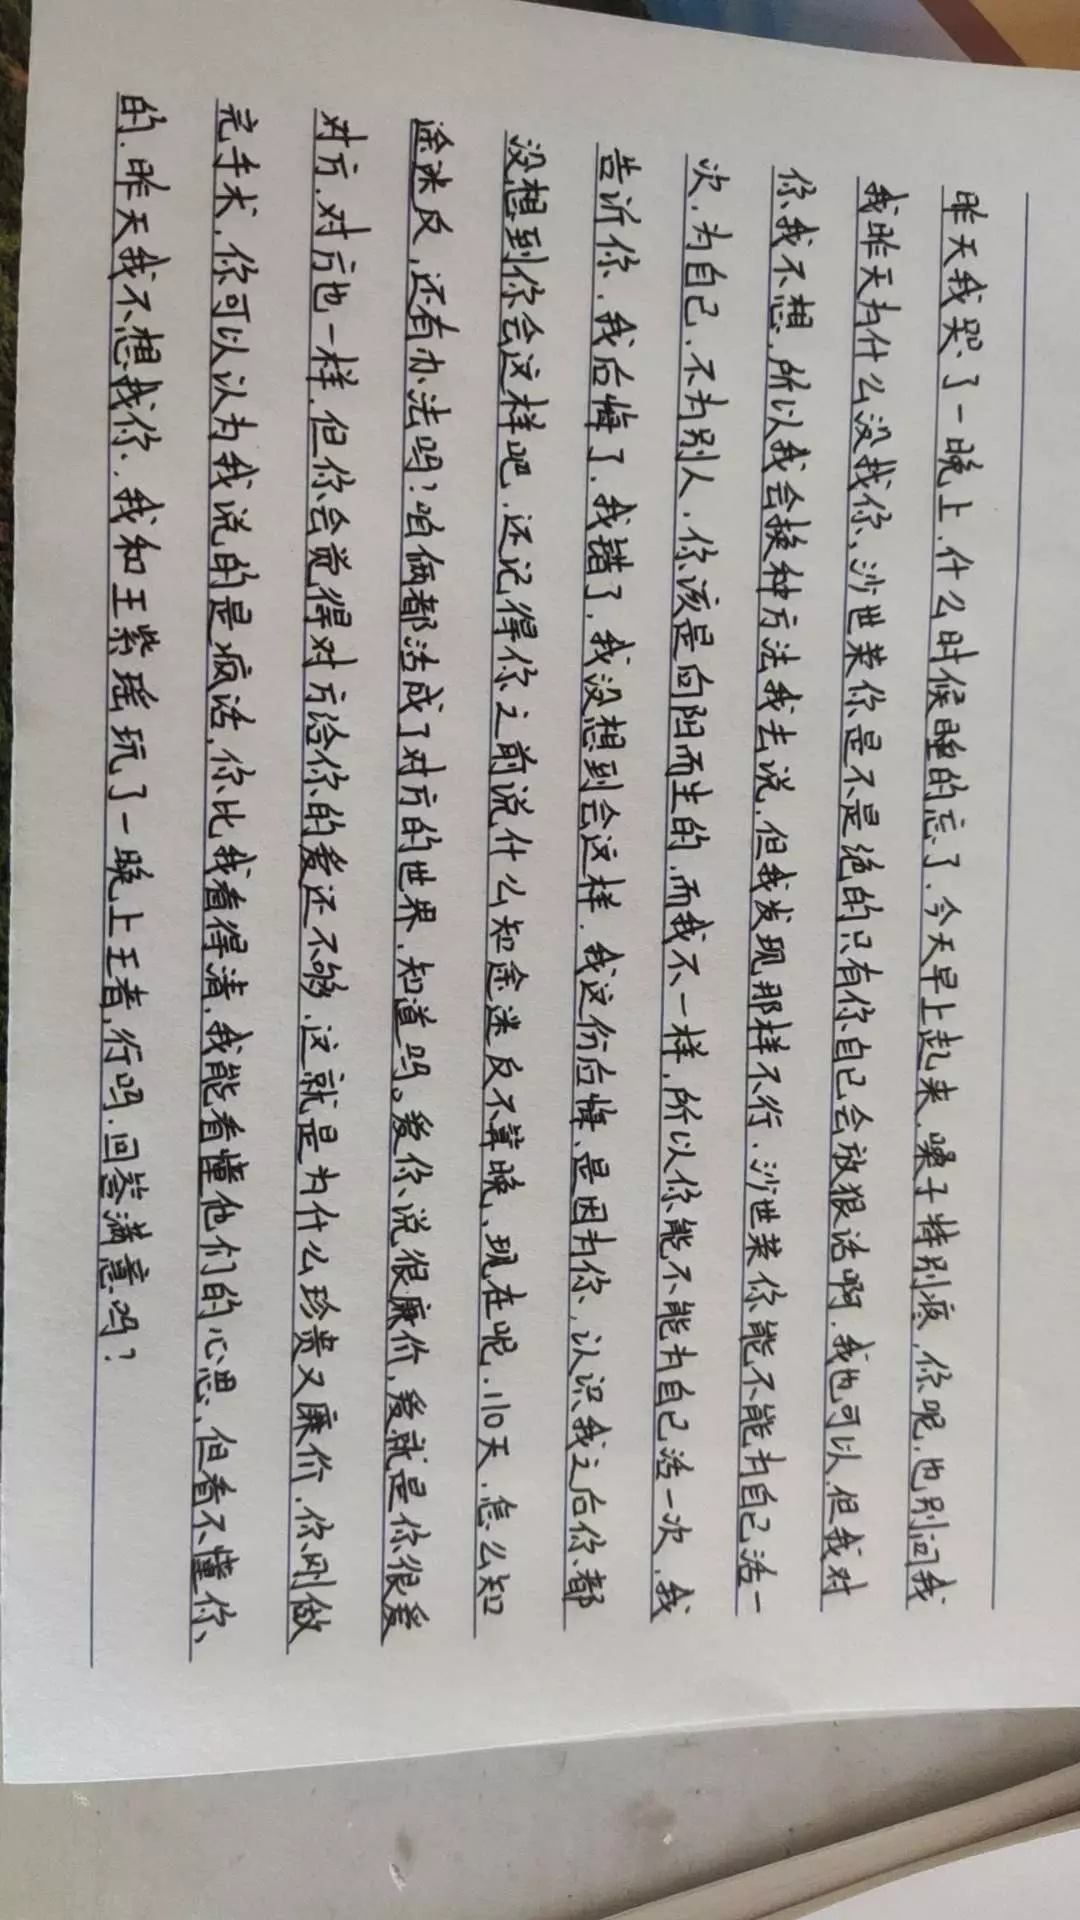 昨天我哭了一晚上.什么时候睡的忘了.今天早上起来.嗓子特别疼.你呢.也别问我
我昨天为什么没找你,沙世荣你是不是绝的只有你自己会放狠话啊.我也可以.但我对
你我不想.所以我会换种方法我去说.但我发现那样不行.沙世荣你能不能为自己活一
次.为自己.不为别人.你该是向阳而生的.而我不一样.所以你能不能为自己活一次.我
告诉你.我后悔了.我错了.我没想到会这样.我这份后悔、是因为你、认识我之后你都
没想到你会这样吧.还记得你之前说什么知途迷反不算晚、现在呢.110天.怎么知
途迷反.还有办法吗?咱俩都活成了对方的世界.知道吗。爱你说很廉价,爱就是你很爱
对方.对方也一样.但你会觉得对方给你的爱还不够.这就是为什么珍贵又廉价.你刚做
完手术.你可以认为我说的是疯话,你比我看得清.我能看懂他们的心思,但看不懂你、
的.昨天我不想找你.我和王紫瑶玩了一晚上王者,行吗.回答满意吗?